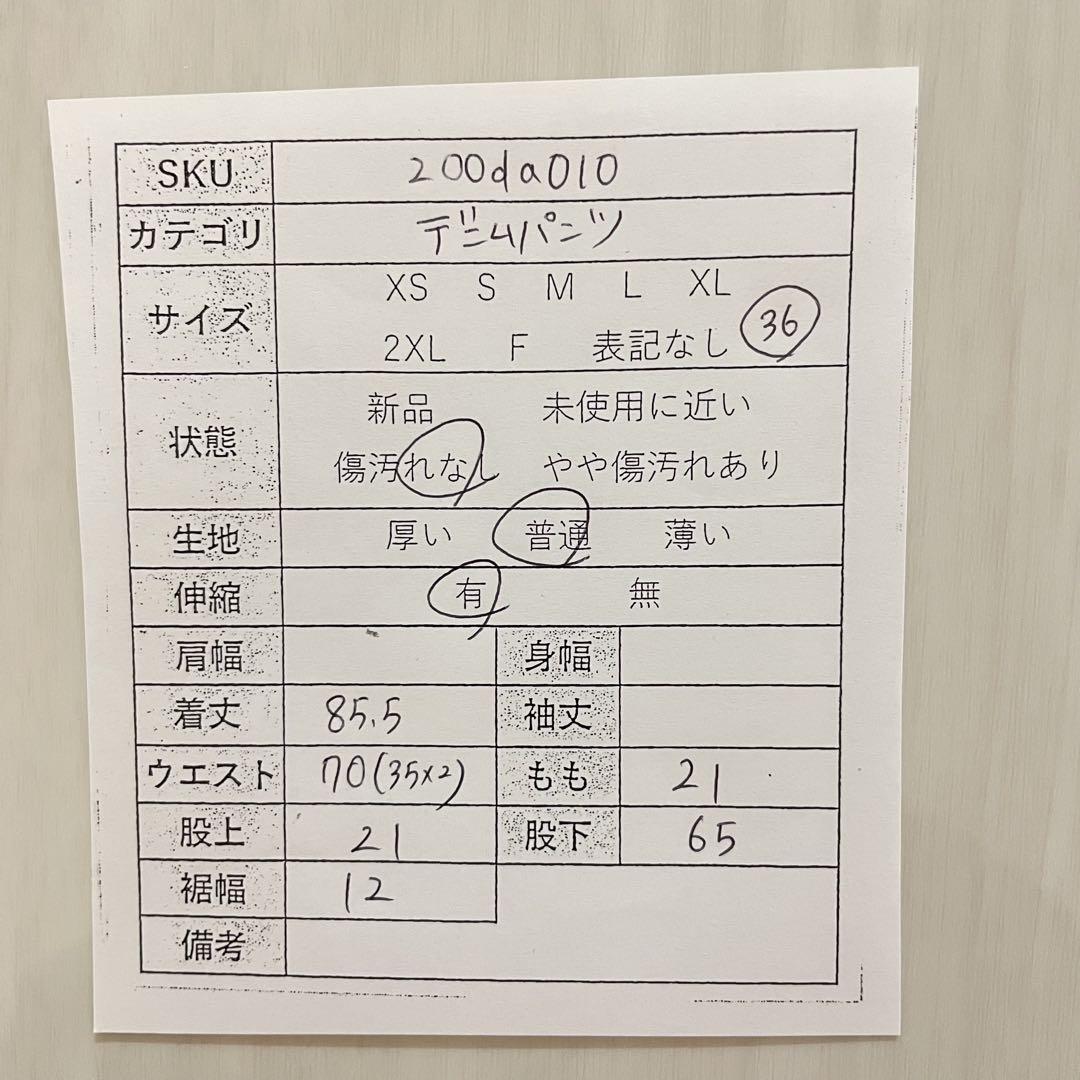 SKU 200da010
カテゴリ デニムパンツ
サイズ XS S M L XL
2XL F 表記なし 36
状態 新品 未使用に近い
傷汚れなし やや傷汚れあり
生地 厚い 普通 薄い
伸縮 有 無
肩幅 身幅
着丈 85.5 袖丈
ウエスト 70(35×2) もも 21
股上 21 股下 65
裾幅 12
備考